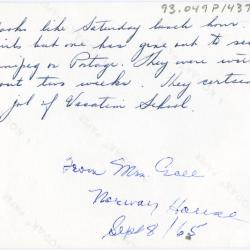 93.049P/1437
ooks like Saturday lunch hour
irls but one has gone out to se
nnipeg or Portage. They were wi
out two weeks. They certai
job of Vacation School.
From Mrs.
Norway House
Sept 8/65